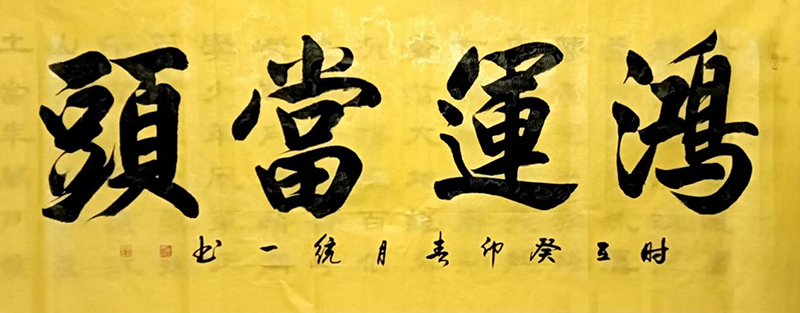 鴻運當頭
时在癸卯春月统一书